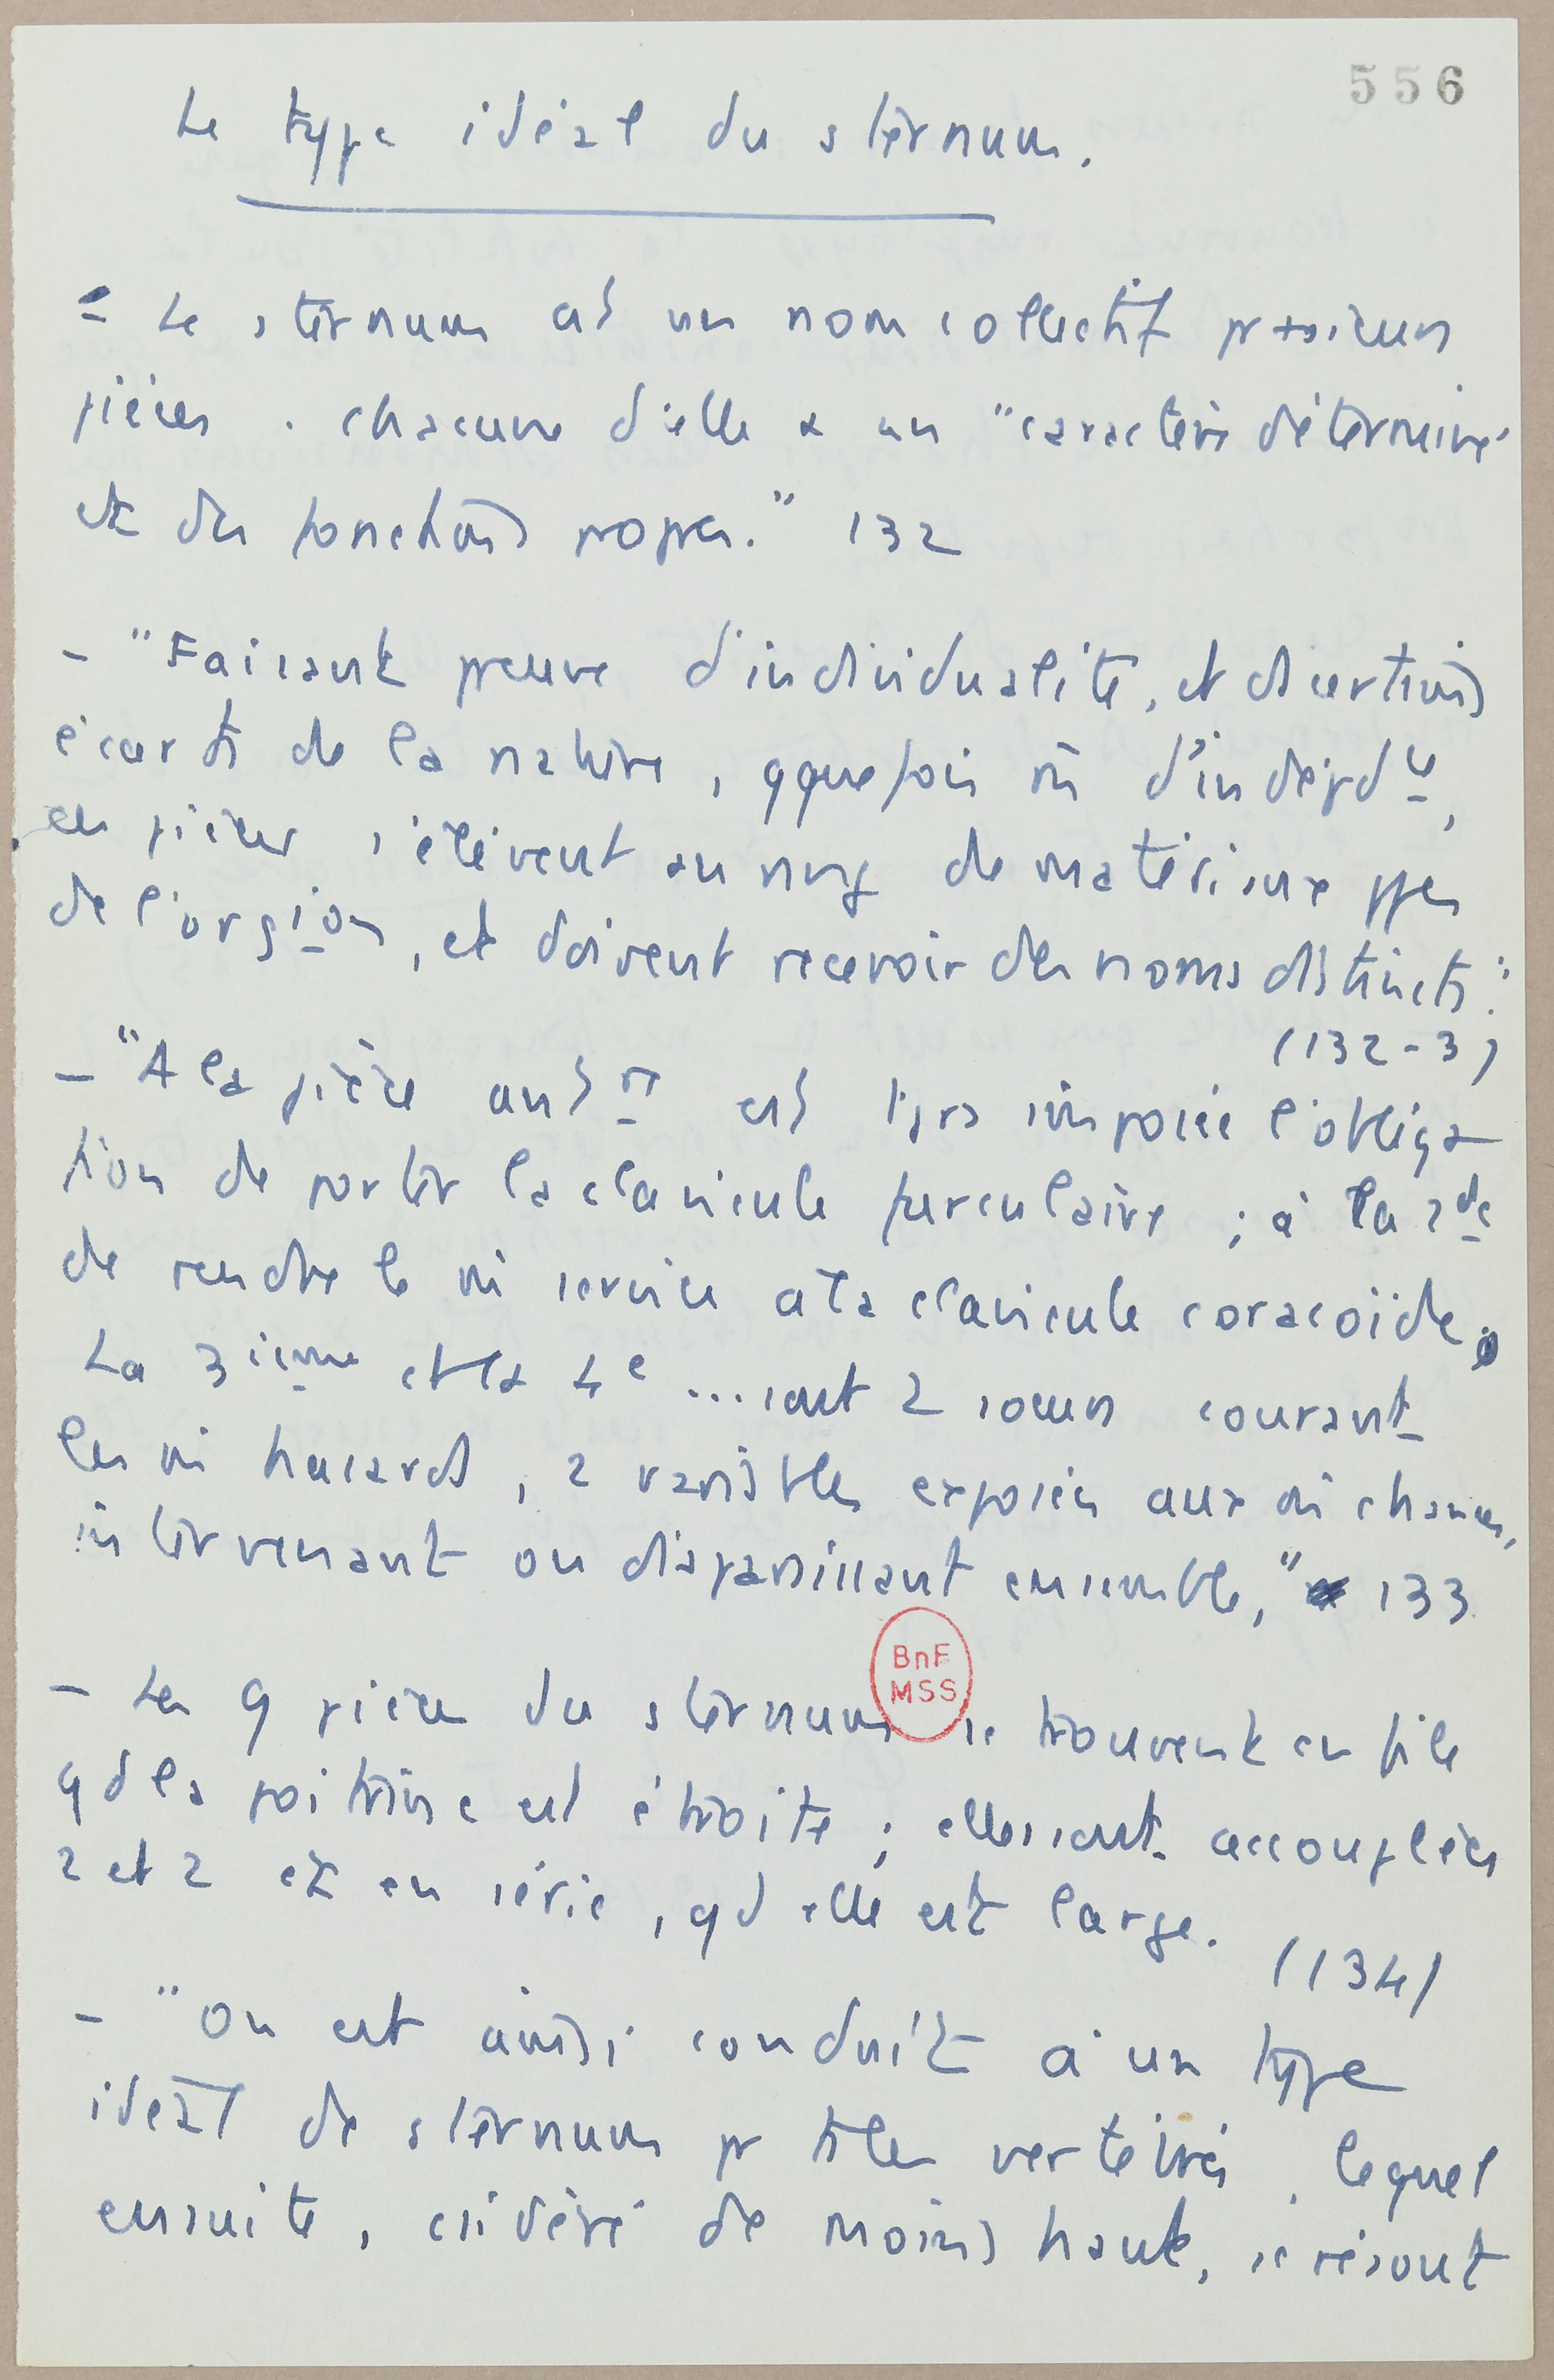 556
Le type idéal du sternum.
- Le sternum est un nom collectif pr plusieurs
pièces. chacune d'elle a un "caractère déterminé
et des fonctions propres." 132
- "Faisant preuve d'individualité, et ds certains
écarts de la nature, qquefois m̂ d'indépdce,
ces pièces s'élèvent au rang de matériaux ppes
de l'orgion, et doivent recevoir des noms distincts."
(132-3)
- "A la pièce antre est tjrs imposée l'obliga
tion de porter la clavicule furculaire ; à la 2de
de rendre le m̂ service à la clavicule coracoïde.
La 3ième et la 4e ... sont 2 soeurs courant
les m̂ hasards, 2 variables exposées aux m̂ chances,
intervenant ou disparaissant ensemble," 133
- Les 9 pièces du sternum se trouvent en file
qd la poitrine est étroite ; elles sont accouplées
2 et 2 et en série, qd elle est large.
(134)
BnF
MSS
- "On est ainsi conduit à un type
idéal de sternum pr ts les vertébrés, lequel
ensuite, csidéré de moins haut, se résout